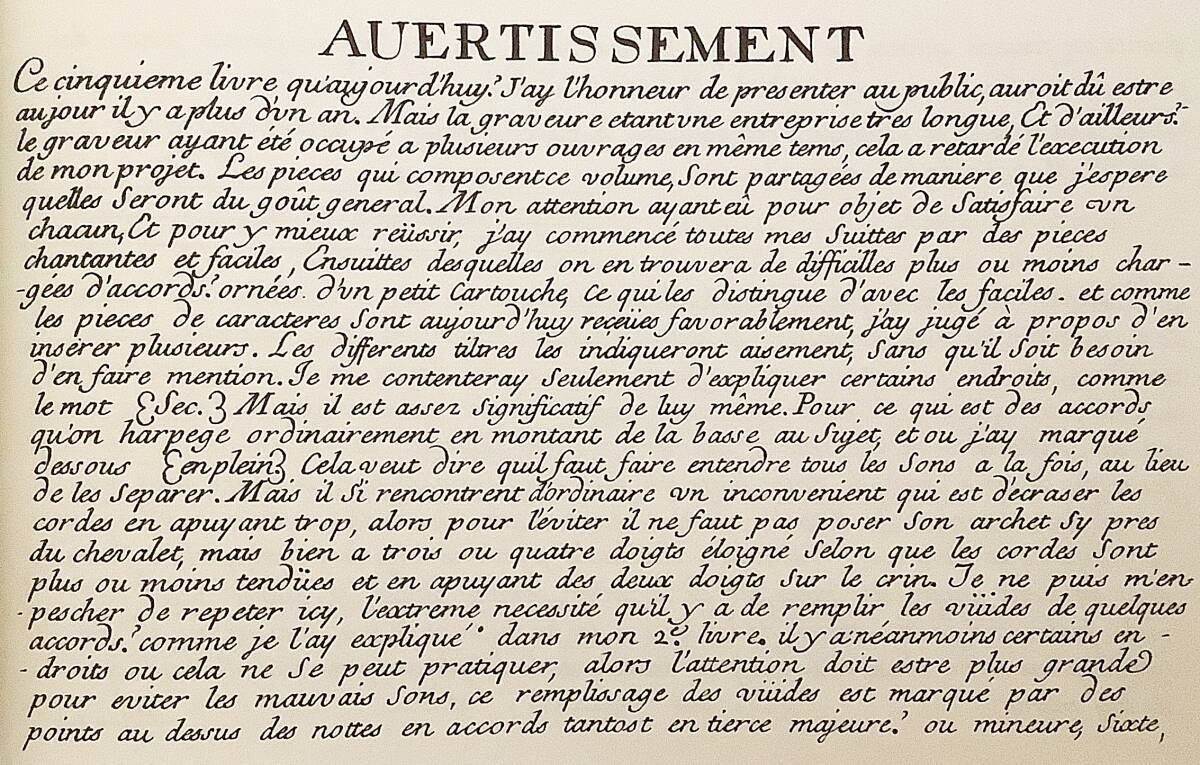 AUERTISSEMENT
Ce cinquieme livre qu'aujourd'huy J'ay l'honneur de presenter au public, auroit dû estre
aujour il y a plus d'vn an. Mais la graveure etant vne entreprise tres longue, Et d'ailleurs
le graveur ayant été occupé a plusieurs ouvrages en même tems, cela a retardé l'execution
de mon projet. Les pieces qui composent ce volume, Sont partagées de maniere que j'espere
quelles Seront du goût general. Mon attention ayant eû pour objet de Satisfaire vn
chacun, Et pour y mieux reüssir, j'ay commencé toutes mes Suittes par des pieces
chantantes et faciles, Ensuittes desquelles on en trouvera de difficilles plus ou moins char-
-gées d'accords ornées d'vn petit Cartouche, Ce qui les distingue d'avec les faciles. et comme
les pieces de caracteres Sont aujourd'huy reçeües favorablement, j'ay jugé à propos d'en
insérer plusieurs. Les differents tiltres les indiqueront aisement, Sans qu'il Soit besoin
d'en faire mention. Je me contenteray Seulement d'expliquer certains endroits, comme
le mot {Sec.} Mais il est assez Significatif de luy même. Pour ce qui est des accords
qu'on harpege ordinairement en montant de la basse au Sujet, et ou j'ay marqué
dessous {en plein} Cela veut dire quil faut faire entendre tous les Sons a la fois, au lieu
de les Separer. Mais il Si rencontrent d'ordinaire vn inconvenient qui est d'ecraser les
cordes en apuyant trop, alors pour l'éviter il ne faut pas poser Son archet Sy pres
du chevalet, mais bien a trois ou quatre doigts éloigné Selon que les cordes Sont
plus ou moins tendües et en apuyant des deux doigts Sur le crin. Je ne puis m'en-
-pescher de repeter icy, l'extreme necessité qu'il y a de remplir les vüides de quelques
accords. comme je l'ay expliqué dans mon 2.e livre. il y a néanmoins certains en-
-droits ou cela ne Se peut pratiquer, alors l'attention doit estre plus grande
pour eviter les mauvais Sons, ce remplissage des vüides est marqué par des
points au dessus des nottes en accords tantost en tierce majeure. ou mineure, Sixte,